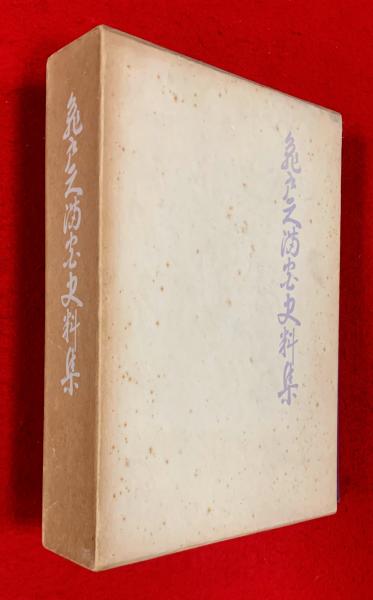 亀戸天満宮史料集
亀戸天満宮史料集